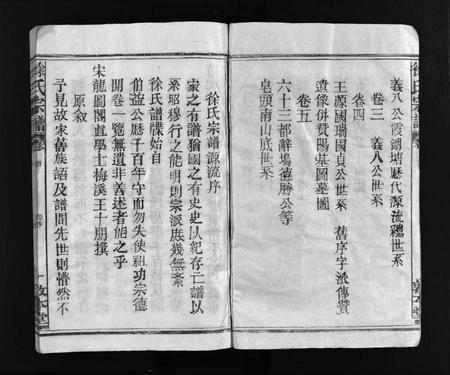 徐氏宗譜 卷
敦本堂
義八公霞湖墳歷代源流總世系
卷三 義八公世系
卷四
王源國瑞國貞公世系 舊序字派傳贊
遺像併贊陽基圖墓圖
卷五
六十三都辭塢德勝公等
皂頭南山底世系
徐氏宗譜源流序
家之有譜猶國之有史史以紀存亡譜以
系昭穆行之能明則宗派庶幾無紊
徐氏譜牒始自
伯益公歷千百年守而勿失使祖功宗德
開卷一覽無遺非善述者能之乎
宋龍圖閣直學士梅溪王十朋撰
原敘
予見故家舊族詔及譜間先世則懵然不
徐氏宗譜 卷
一 敦本堂